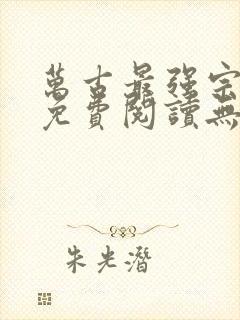 萬古最強宗
免費閱讀無
朱光潛